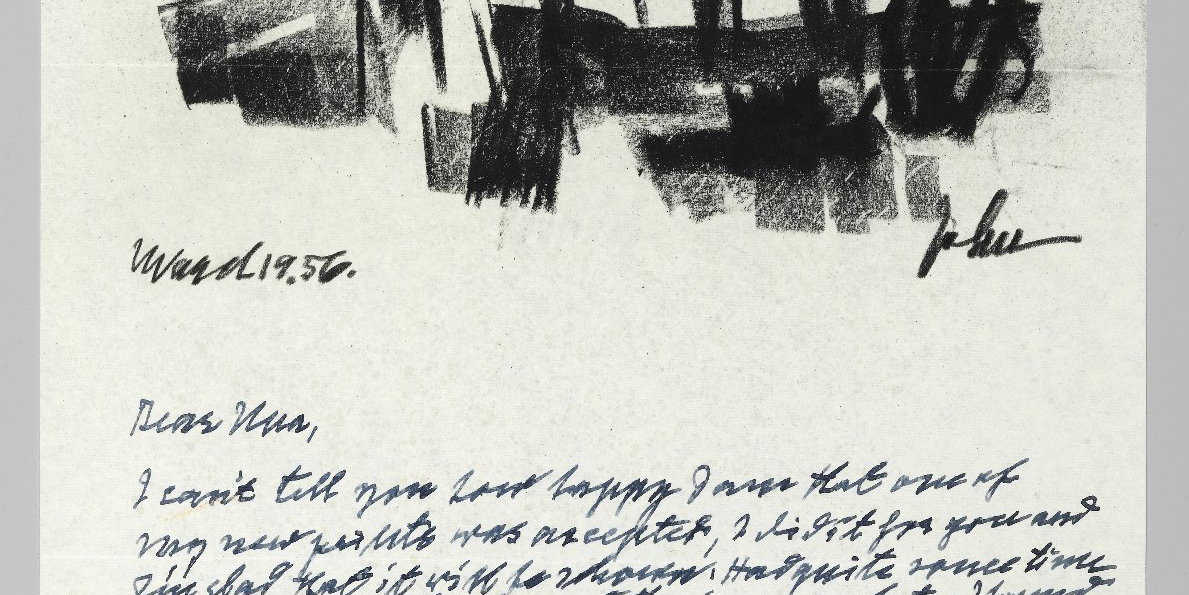 March 19.56.
John
Dear Una,
I can't tell you how happy I am that one of
my new prints was accepted, I did it for you and
I'm glad that it will be shown. Had quite some time